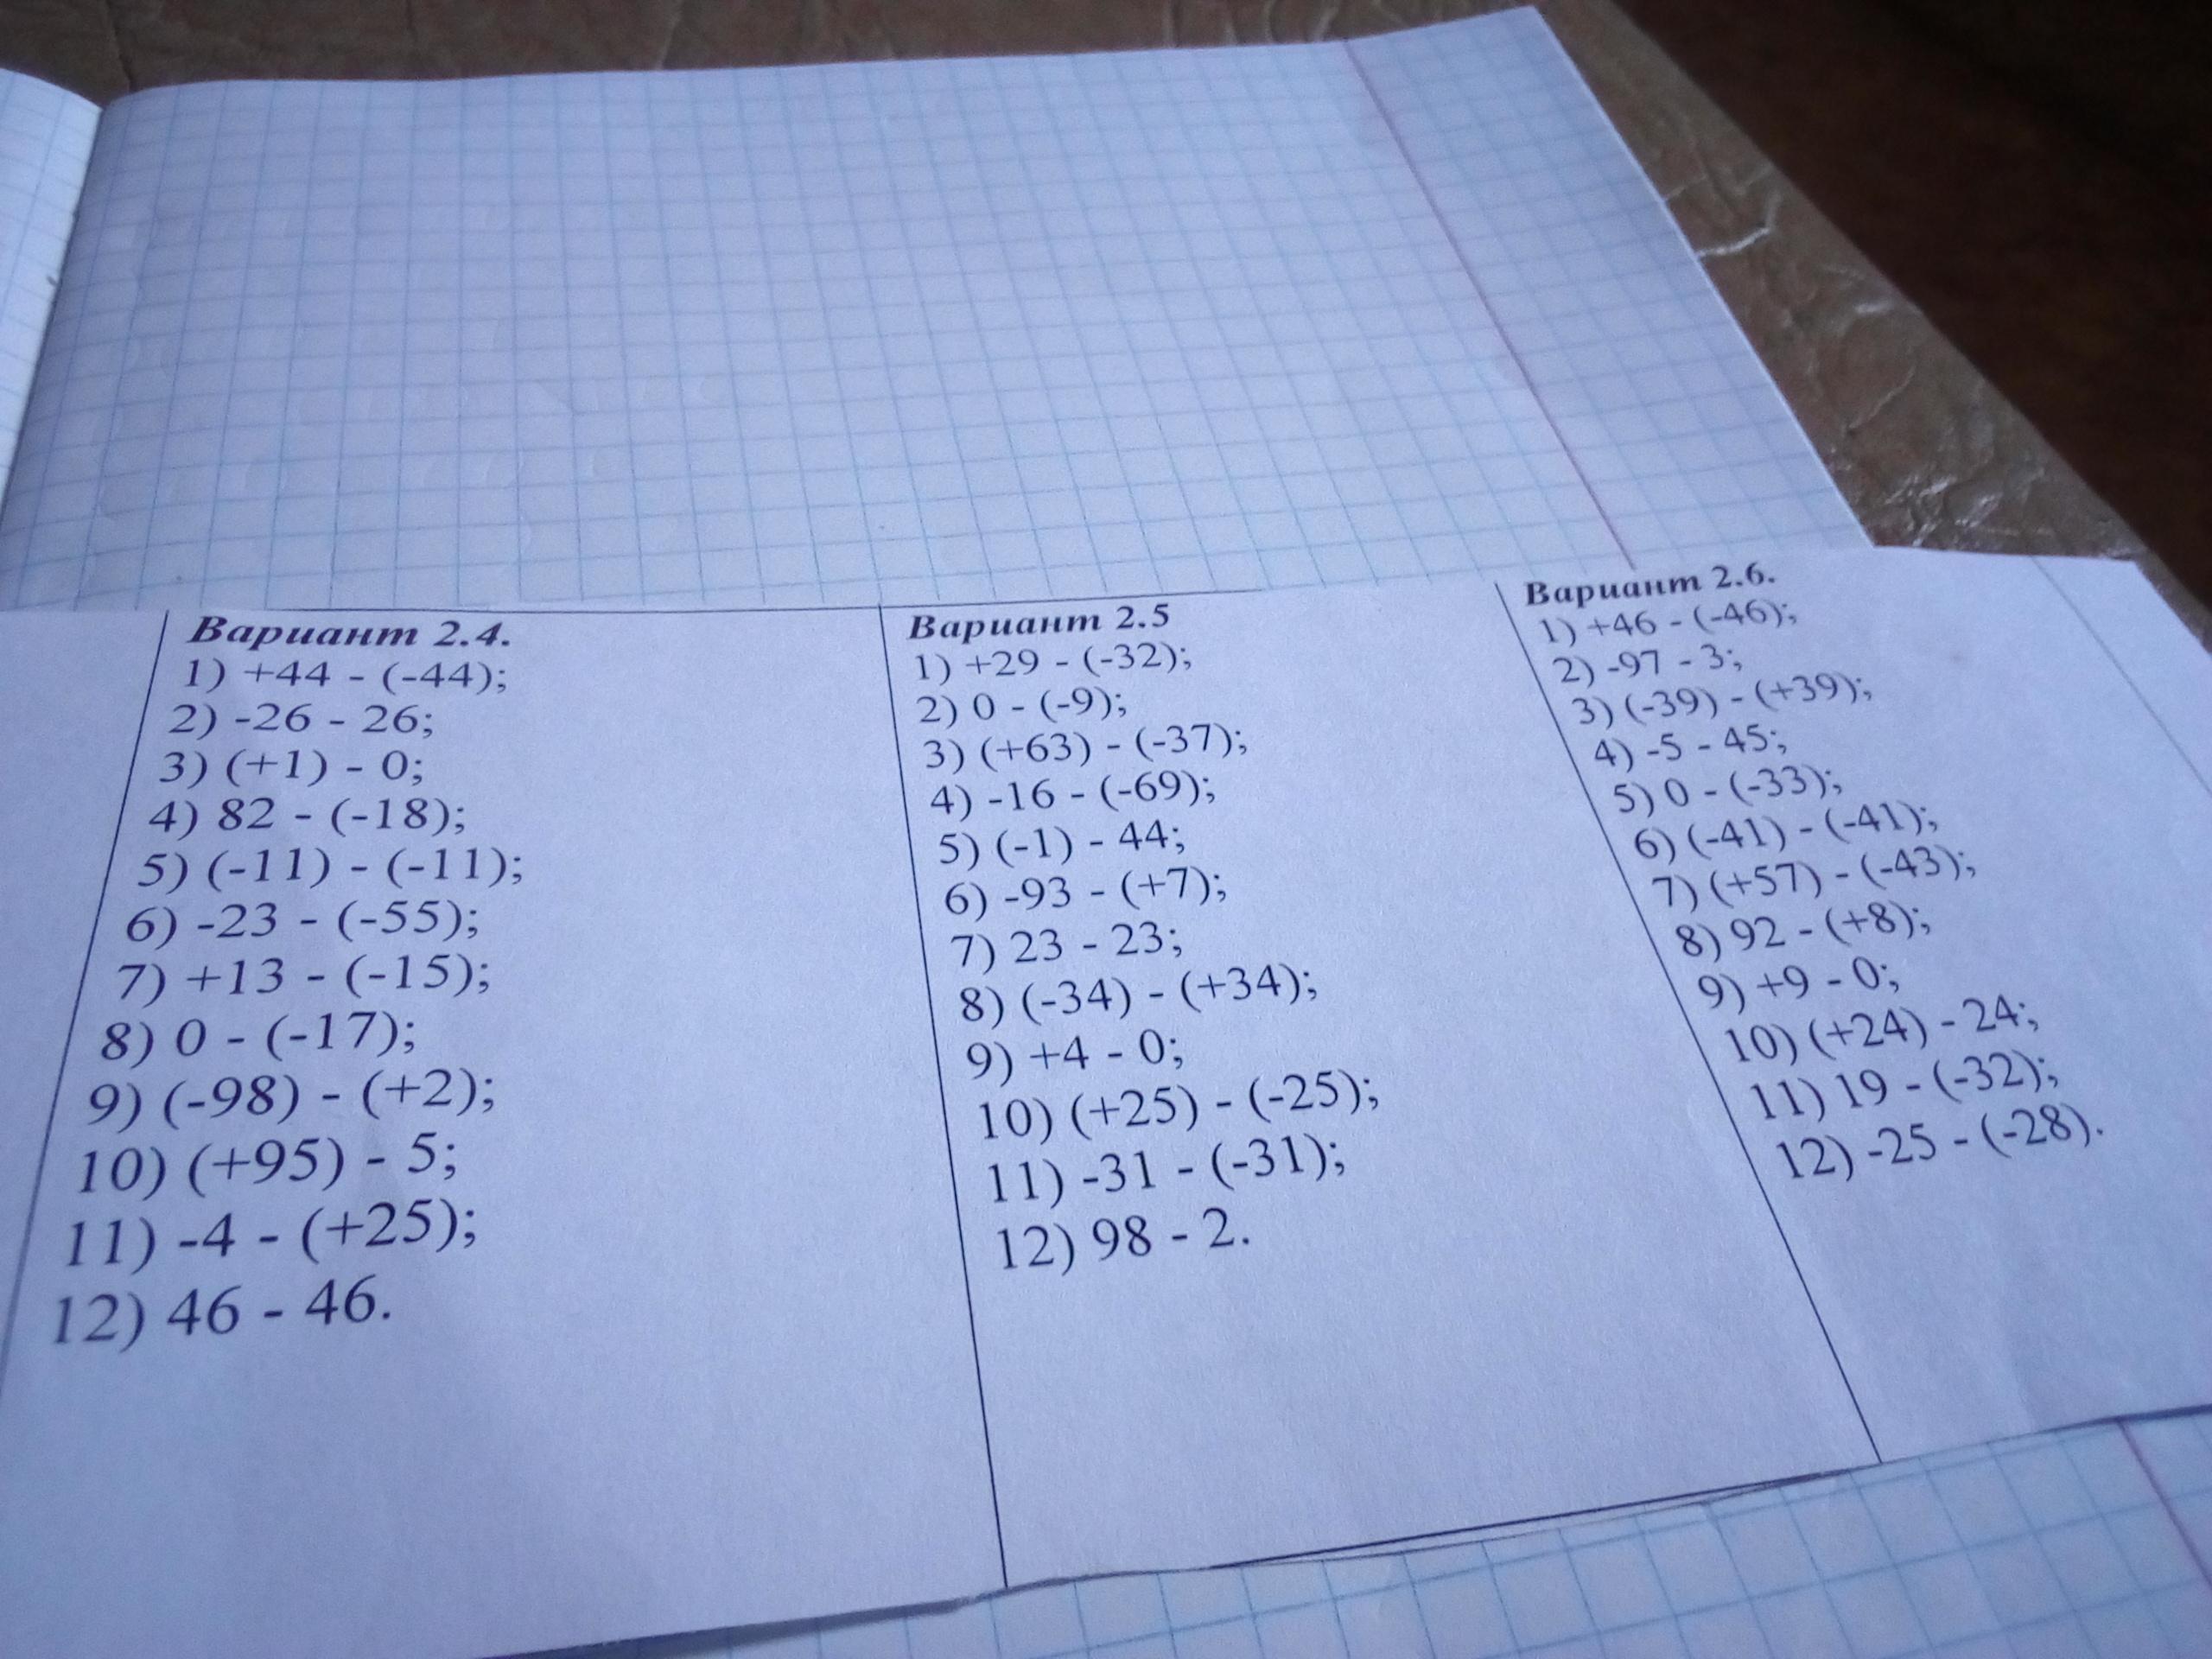 Вариант 2.4.
1) +44 - (-44);
2) -26 - 26;
3) (+1) - 0;
4) 82 - (-18);
5) (-11) - (-11);
6) -23 - (-55);
7) +13 - (-15);
8) 0 - (-17);
9) (-98) - (+2);
10) (+95) - 5;
11) -4 - (+25);
12) 46 - 46.
Вариант 2.5
1) +29 - (-32);
2) 0 - (-9);
3) (+63) - (-37);
4) -16 - (-69);
5) (-1) - 44;
6) -93 - (+7);
7) 23 - 23;
8) (-34) - (+34);
9) +4 - 0;
10) (+25) - (-25);
11) -31 - (-31);
12) 98 - 2.
Вариант 2.6.
1) +46 - (-46);
2) -97 - 3;
3) (-39) - (+39);
4) -5 - 45;
5) 0 - (-33);
6) (-41) - (-41);
7) (+57) - (-43);
8) 92 - (+8);
9) +9 - 0;
10) (+24) - 24;
11) 19 - (-32);
12) -25 - (-28).